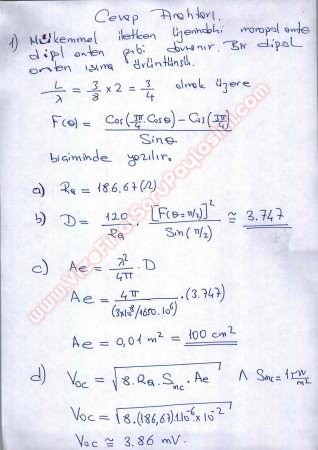 Cevap Anahtarı.
1) Mükemmel iletken üzerindeki monopol anten
dipol anten gibi davranır. Bir dipol
anten ısıma örüntüsü.
L/λ = 3/8 x 2 = 3/4 olmak üzere
F(θ) = Cos(3π/4 . Cosθ) - Cos(3π/4) / Sinθ
biçiminde yazılır.
a) Ra = 186,67 (Ω)
b) D = 120/Ra . [F(θ=π/2)]² / Sin(π/2) ≅ 3.747
c) Ae = λ²/4π . D
Ae = 4π / (3x10⁸/1600.10⁶) . (3.747)
Ae = 0,01 m² = 100 cm²
d) Voc = √8.Ra.Sinc.Ae ∧ Sinc = 1 μW/m²
Voc = √8.(186,67)1.10⁻⁶ x 10⁻²
Voc ≅ 3.86 mV.
www.VizeFinalSoruPaylasimi.com